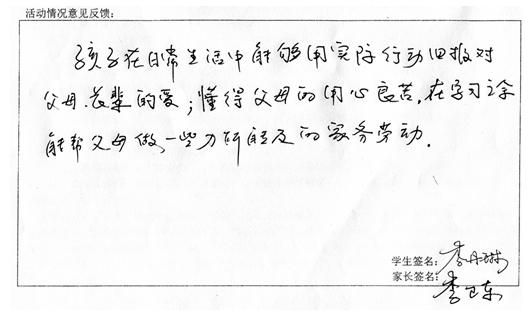 活动情况意见反馈:
孩子在日常生活中能够用实际行动回报对
父母.长辈的爱;懂得父母的用心良苦.在学习之余
能帮父母做一些力所能及的家务劳动.
学生签名:李丹琳
家长签名:李卫东